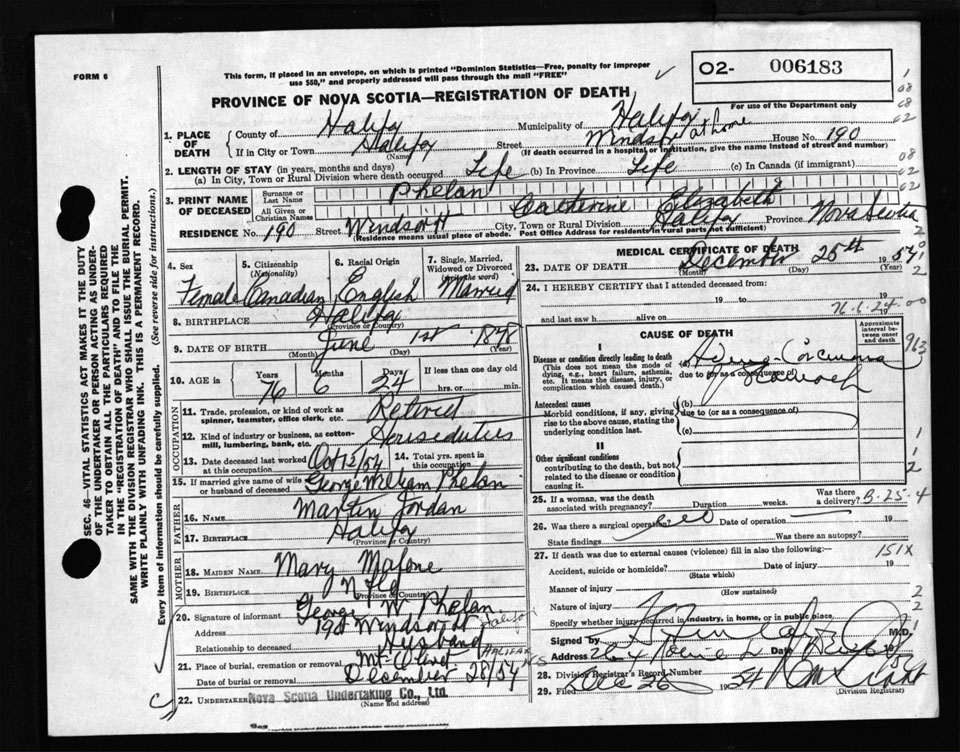 FORM 6
This form, if placed in an envelope, on which is printed "Dominion Statistics—Free, penalty for improper
use $50," and properly addressed will pass through the mail "FREE"
02- 006183
For use of the Department only
PROVINCE OF NOVA SCOTIA—REGISTRATION OF DEATH
1. PLACE OF DEATH
County of Halifax Municipality of Halifax
If in City or Town Halifax Street Windsor at home House No. 190
(Name) (If death occurred in a hospital or institution, give the name instead of street and number)
2. LENGTH OF STAY (in years, months and days)
(a) In City, Town or Rural Division where death occurred Life (b) In Province Life (c) In Canada (if immigrant)
3. PRINT NAME OF DECEASED
Surname or Last Name Phelan
All Given or Christian Names Catherine Elizabeth
RESIDENCE No. 190 Street Windsor St City, Town or Rural Division Halifax Province Nova Scotia
(Residence means usual place of abode. Post Office Address for residents in rural parts not sufficient)
4. Sex Female
5. Citizenship (Nationality) Canadian
6. Racial Origin English
7. Single, Married, Widowed or Divorced (write the word) Married
8. BIRTHPLACE Halifax
(Province or Country)
9. DATE OF BIRTH June 1st 1878
(Month) (Day) (Year)
10. AGE in Years 76 Months 6 Days 24 If less than one day old
hrs. or min.
OCCUPATION
11. Trade, profession, or kind of work as spinner, teamster, office clerk, etc. Retired
12. Kind of industry or business, as cotton-mill, lumbering, bank, etc.
13. Date deceased last worked at this occupation Oct 15/54
14. Total yrs. spent in this occupation
15. If married give name of wife or husband of deceased George William Phelan
FATHER
16. NAME Martin Jordan
17. BIRTHPLACE Halifax
(Province or Country)
MOTHER
18. MAIDEN NAME Mary Malone
19. BIRTHPLACE Nfld
(Province or Country)
20. Signature of informant George W. Phelan
Address 190 Windsor St Halifax
Relationship to deceased Husband
21. Place of burial, cremation or removal Mt. Olivet HALIFAX NS
Date of burial or removal December 28/54
22. UNDERTAKER Nova Scotia Undertaking Co., Ltd.
MEDICAL CERTIFICATE OF DEATH
23. DATE OF DEATH December 25th 1954
(Month) (Day) (Year)
24. I HEREBY CERTIFY that I attended deceased from:
19 to 19
and last saw h alive on 19
76-6-24-00
CAUSE OF DEATH
Approximate interval between onset and death
I
Disease or condition directly leading to death
(This does not mean the mode of dying, e.g., heart failure, asthenia, etc. It means the disease, injury, or complication which caused death.)
(a) Adeno-Carcinoma
due to (or as a consequence of) of Stomach
Antecedent causes
Morbid conditions, if any, giving rise to the above cause, stating the underlying condition last.
(b)
due to (or as a consequence of)
(c)
II
Other significant conditions
contributing to the death, but not related to the disease or condition causing it.
25. If a woman, was the death associated with pregnancy? Duration weeks. Was there a delivery? B-25-4
26. Was there a surgical operation? Date of operation 19
State findings Was there an autopsy?
27. If death was due to external causes (violence) fill in also the following:
151X
Accident, suicide or homicide? Date of injury 19
(State which)
Manner of injury
(How sustained)
Nature of injury
Specify whether injury occurred in industry, in home, or in public place
Signed by M.D.
Address Date
28. Division Registrar's Record Number
29. Filed Dec 26 1954
(Division Registrar)
SEC. 46—VITAL STATISTICS ACT MAKES IT THE DUTY
OF THE UNDERTAKER OR PERSON ACTING AS UNDER-
TAKER TO OBTAIN ALL THE PARTICULARS REQUIRED
IN THE "REGISTRATION OF DEATH" AND TO FILE THE
SAME WITH THE DIVISION REGISTRAR WHO SHALL ISSUE THE BURIAL PERMIT.
WRITE PLAINLY WITH UNFADING INK. THIS IS A PERMANENT RECORD.
Every item of information should be carefully supplied. (See reverse side for instructions.)